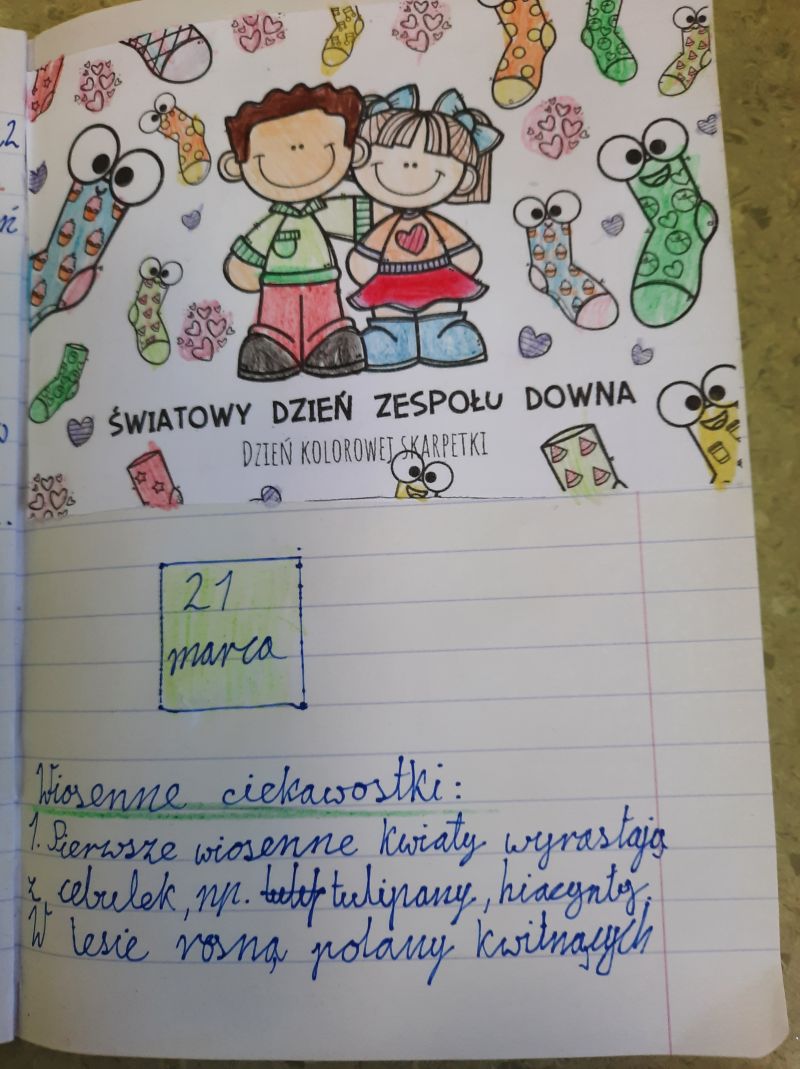 ŚWIATOWY DZIEŃ ZESPOŁU DOWNA
DZIEŃ KOLOROWEJ SKARPETKI
21
marca
Wiosenne ciekawostki:
1. Pierwsze wiosenne kwiaty wyrastają
z cebulek, np. tulipany, hiacynty.
W lesie rosną polany kwitnących